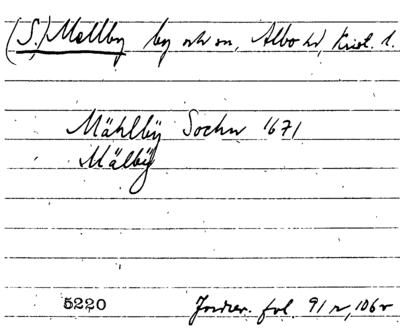 (S.) Mellby by och sn, Albo hd, Krist. l.
Mählbÿ Sochn 1671
Mälbÿ
5220 Jordrev. fol. 91 r, 106 r